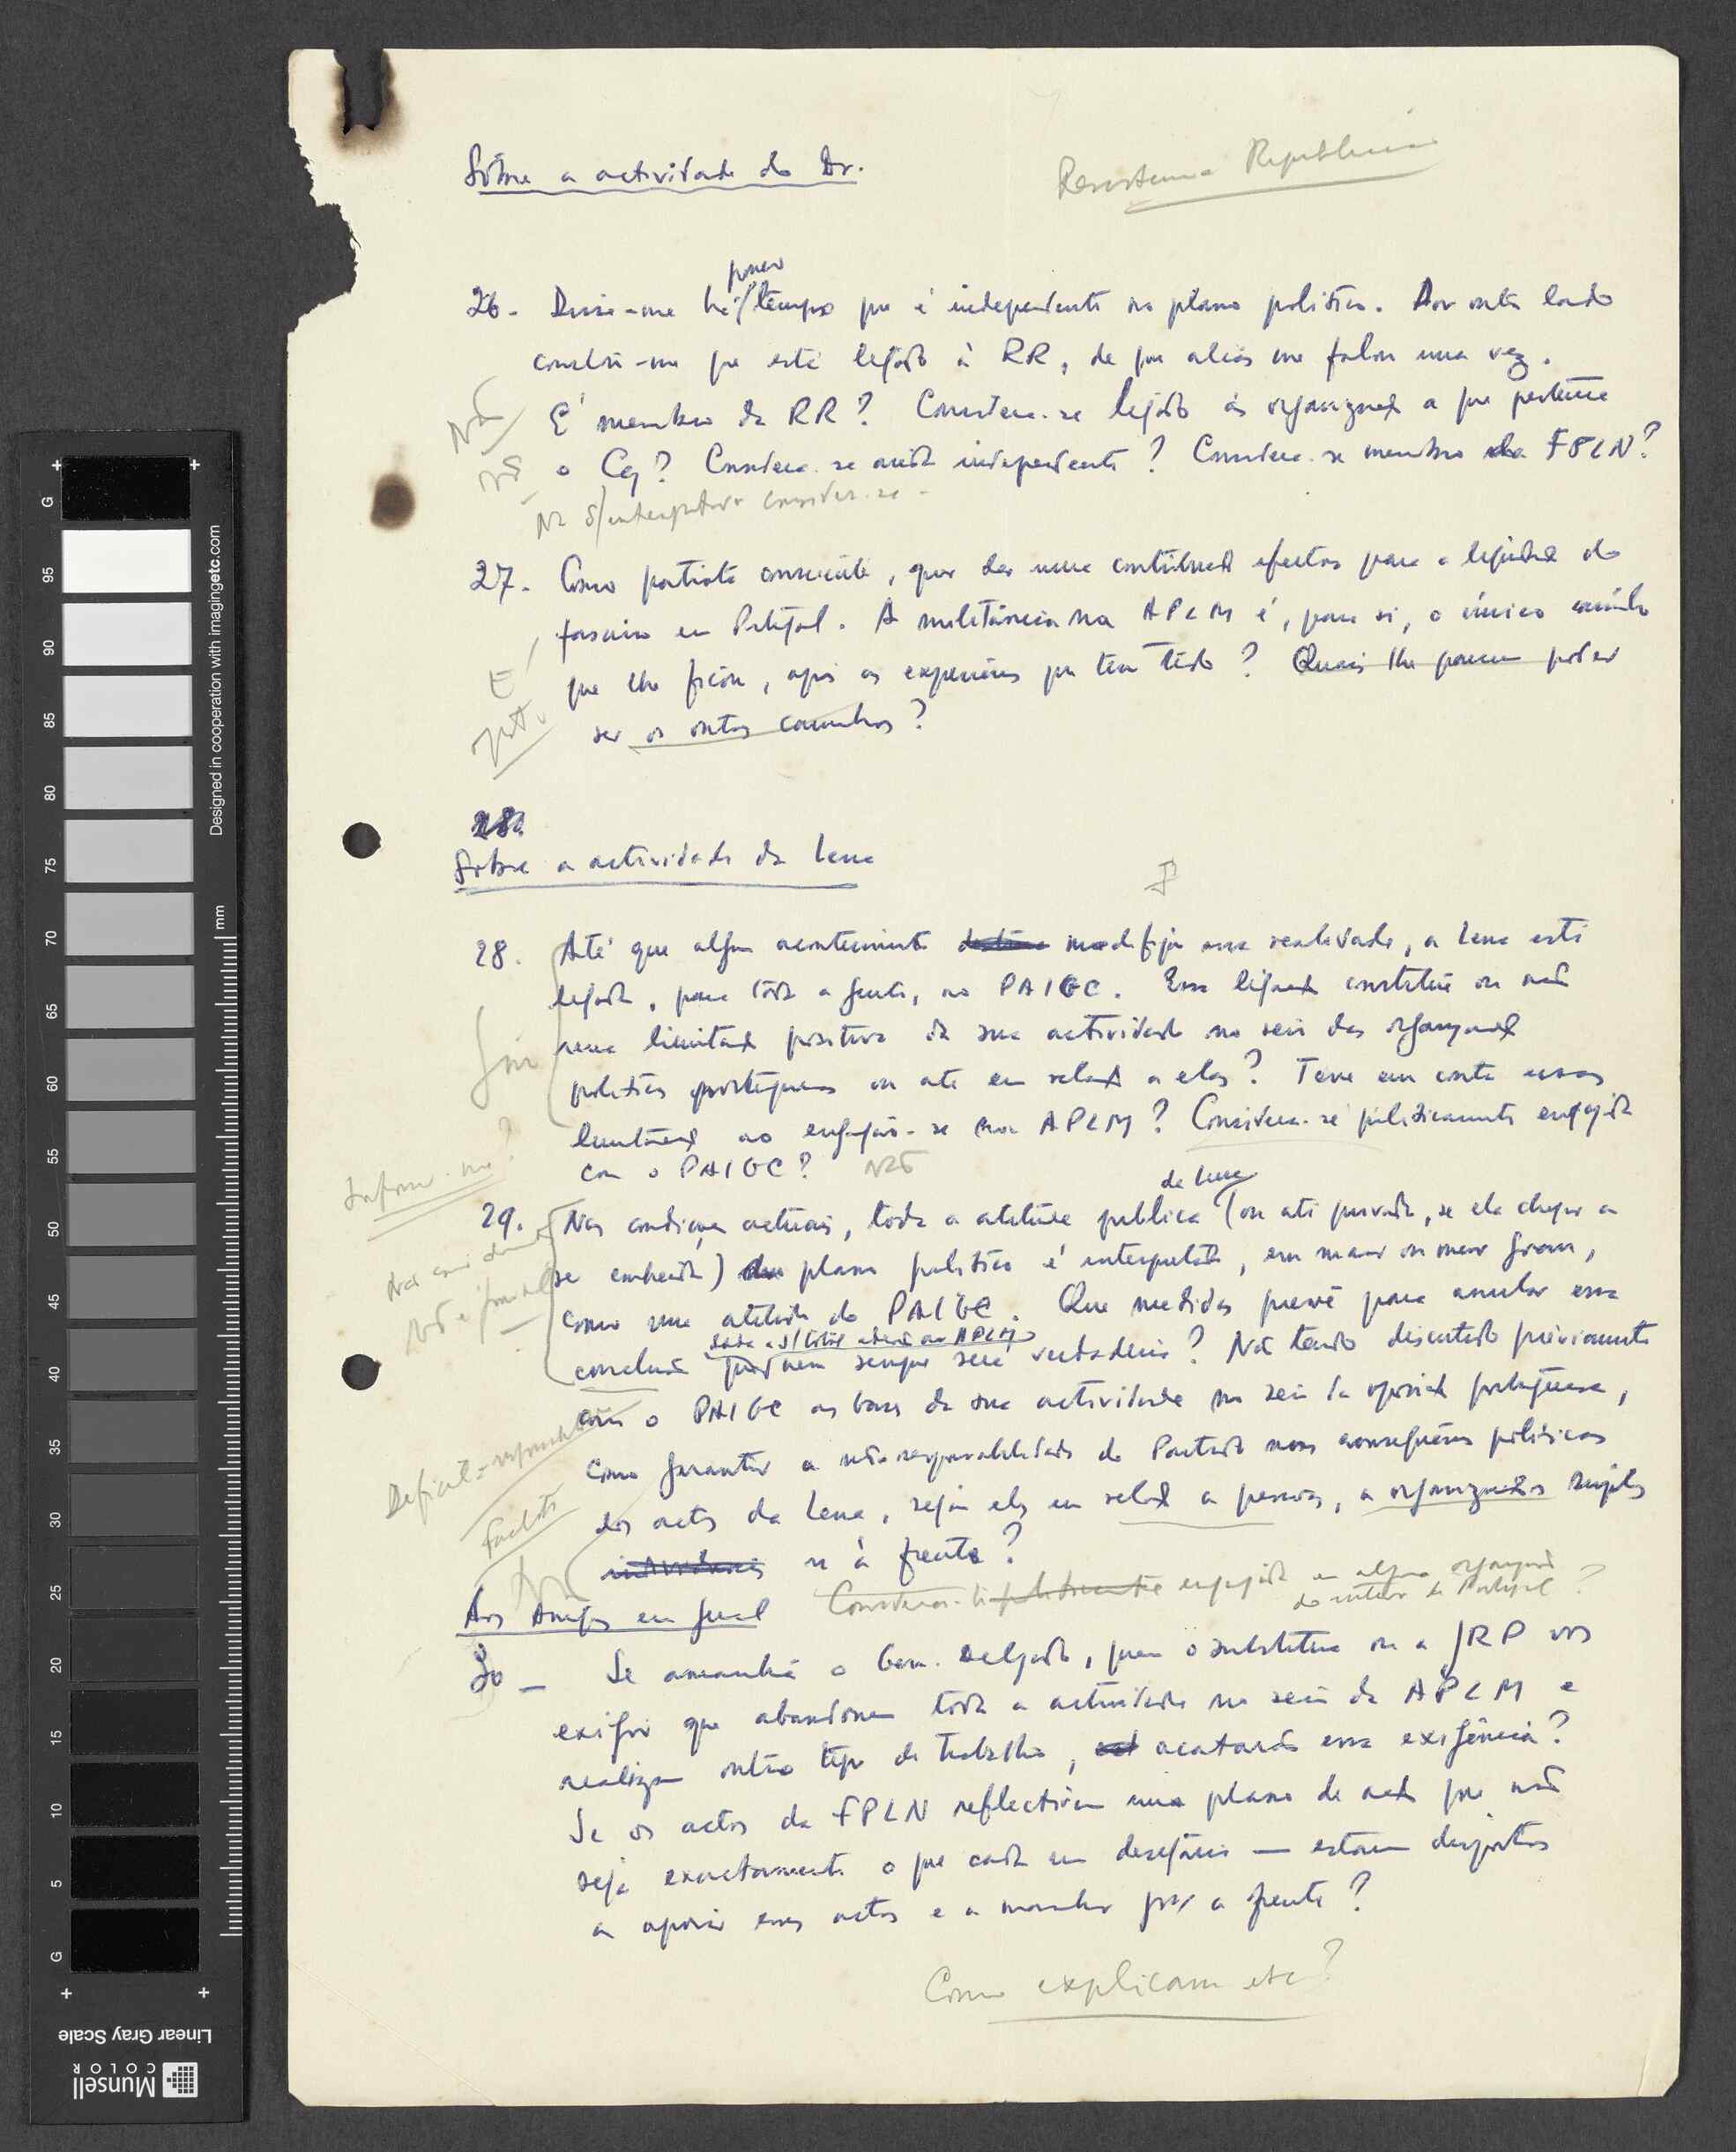 Sôbre a actividade do Dr.
Resistencia Republicana
pouco
26. Disse-me há tempo que é independente no plano politico. Por outro lado
constou-me que está ligado à RR, de que aliás me falou uma vez.
Não
É membro da RR? Considera-se ligado às organizações a que pertence
o Ceq? Considera-se ainda independente? Considera-se membro da FPLN?
considera-se -
27. Como patriota consciente, quer dar uma contribuição efectiva para a liquidação do
fascismo em Portugal. A militância na APLM é, para si, o único caminho
É
que lhe ficou, após as experiências que tem tido? Quais lhe parecem poder
ser os outros caminhos?
28.
Sobre a actividade da Lena
28. Até que algum acontecimento modifique essa realidade, a Lena está
ligada, para tôda a gente, ao PAIGC. Essa ligação constitue ou não
Sim
uma limitação positiva da sua actividade no seio das organizações
politicas portuguesas ou até em relação a elas? Teve em conta essas
limitações ao engajar-se na APLM? Considera-se politicamente engajada
com o PAIGC? Não
Informa-me?
da Lena
29. Nas condições actuais, toda a atitude publica (ou até privada, se ela chegar a
ser conhecida) plano politico é interpretada, em maior ou menor grau,
Não é
como uma atitude do PAIGC. Que medidas prevê para anular essa
dada a s/ total adesão ao APLM
conclusão que nem sempre será verdadeira? Não tendo discutido préviamente
com o PAIGC as bases da sua actividade no seio da oposição portuguesa,
como garantir a não-responsabilidade do Partido nas consequências politicas
dos actos da Lena, sejam eles em relação a pessoas, a organizações simples
ou à frente?
Aos Amigos em geral
Considera-se politicamente engajada em alguma organização
do interior de Portugal?
30 - Se amanhã o Gen. Delgado, quem o substitua ou a JRP vos
exigir que abandonem toda a actividade no seio da APLM e
realizem outro tipo de trabalho, acatarão essa exigência?
Se os actos da FPLN reflectirem um plano de acção que não
seja exactamente o que cada um desejaria - estarão dispostos
a apoiar esses actos e a marchar para a frente?
Como explicam etc?